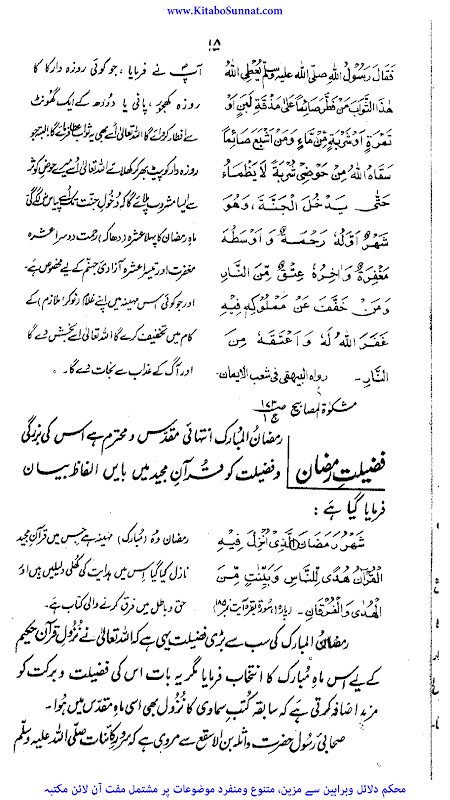 www.KitaboSunnat.com
۱۸
فَقَالَ رَسُوْلُ اللهِ صَلَّی اللهُ عَلَیْهِ وَسَلَّمَ یُعْطِی اللهُ
هٰذَا الثَّوَابَ مَنْ فَطَّرَ صَائِمًا عَلٰی مَذْقَةِ لَبَنٍ اَوْ
تَمْرَةٍ اَوْ شَرْبَةٍ مِّنْ مَّاءٍ وَمَنْ اَشْبَعَ صَائِمًا
سَقَاهُ اللهُ مِنْ حَوْضِیْ شَرْبَةً لَا یَظْمَاءُ
حَتّٰی یَدْخُلَ الْجَنَّةَ، وَهُوَ
شَهْرٌ اَوَّلُهٗ رَحْمَةٌ وَاَوْسَطُهٗ
مَغْفِرَةٌ وَاٰخِرُهٗ عِتْقٌ مِّنَ النَّارِ
وَمَنْ خَفَّفَ عَنْ مَّمْلُوْکِهٖ فِیْهِ
غَفَرَ اللهُ لَهٗ وَاَعْتَقَهٗ مِنَ
النَّارِ۔ رواه البیهقی فی شعب الایمان۔
مشکوٰة المصابیح ص ۱۷۳ ج ۱
آپؐ نے فرمایا، جو کوئی روزہ دار کا
روزہ کھجور، پانی یا دودھ کے ایک گھونٹ
سے افطار کروائے گا اللہ تعالیٰ اُسے بھی یہ ثواب عطا فرمائے گا۔ البتہ جو
روزہ دار کو پیٹ بھر کر کھلائے اللہ تعالیٰ اُسے میرے حوضِ کوثر
سے ایسا مشروب پلائے گا کہ دخولِ جنت تک اسے پیاس نہ لگے گی
ماہِ رمضان کا پہلا عشرہ (دھاکہ) رحمت دوسرا عشرہ
مغفرت اور تیسرا عشرہ آزادیٔ جہنم کے لیے مخصوص ہے۔
اور جو کوئی اس مہینہ میں اپنے غلام (نوکر/ ملازم) کے
کام میں تخفیف کرے گا اللہ تعالیٰ اُسے بخش دے گا
اور آگ کے عذاب سے نجات دے گا۔
فضیلتِ رمضان
رمضانُ المبارک انتہائی مقدس و محترم ہے اس کی بزرگی
و فضیلت کو قرآنِ مجید میں بایں الفاظ بیان
فرمایا گیا ہے :
شَهْرُ رَمَضَانَ الَّذِیْ اُنْزِلَ فِیْهِ
الْقُرْاٰنُ هُدًی لِّلنَّاسِ وَبَیِّنٰتٍ مِّنَ
الْهُدٰی وَالْفُرْقَانِ۔ (پارہ ۲ سورۃ بقرہ آیت ۱۸۵)
رمضان وہ (مبارک) مہینہ ہے جس میں قرآن مجید
نازل کیا گیا جس میں ہدایت کی کھلی دلیلیں ہیں اور
حق و باطل میں فرق کرنے والی کتاب ہے۔
رمضانُ المبارک کی سب سے بڑی فضیلت یہی ہے کہ اللہ تعالیٰ نے نزولِ قرآن حکیم
کے لیے اس ماہِ مُبارک کا انتخاب فرمایا مگر یہ بات اس کی فضیلت و برکت کو
مزید اضافہ کرتی ہے کہ سابقہ کتبِ سماوی کا نزول بھی اسی ماہِ مقدس میں ہُوا۔
صحابیٔ رسول حضرت واثلہ بن الاسقع سے مروی ہے کہ سرورِ کائنات صلی اللہ علیہ وسلم
محکم دلائل وبراہین سے مزین، متنوع ومنفرد موضوعات پر مشتمل مفت آن لائن مکتبہ